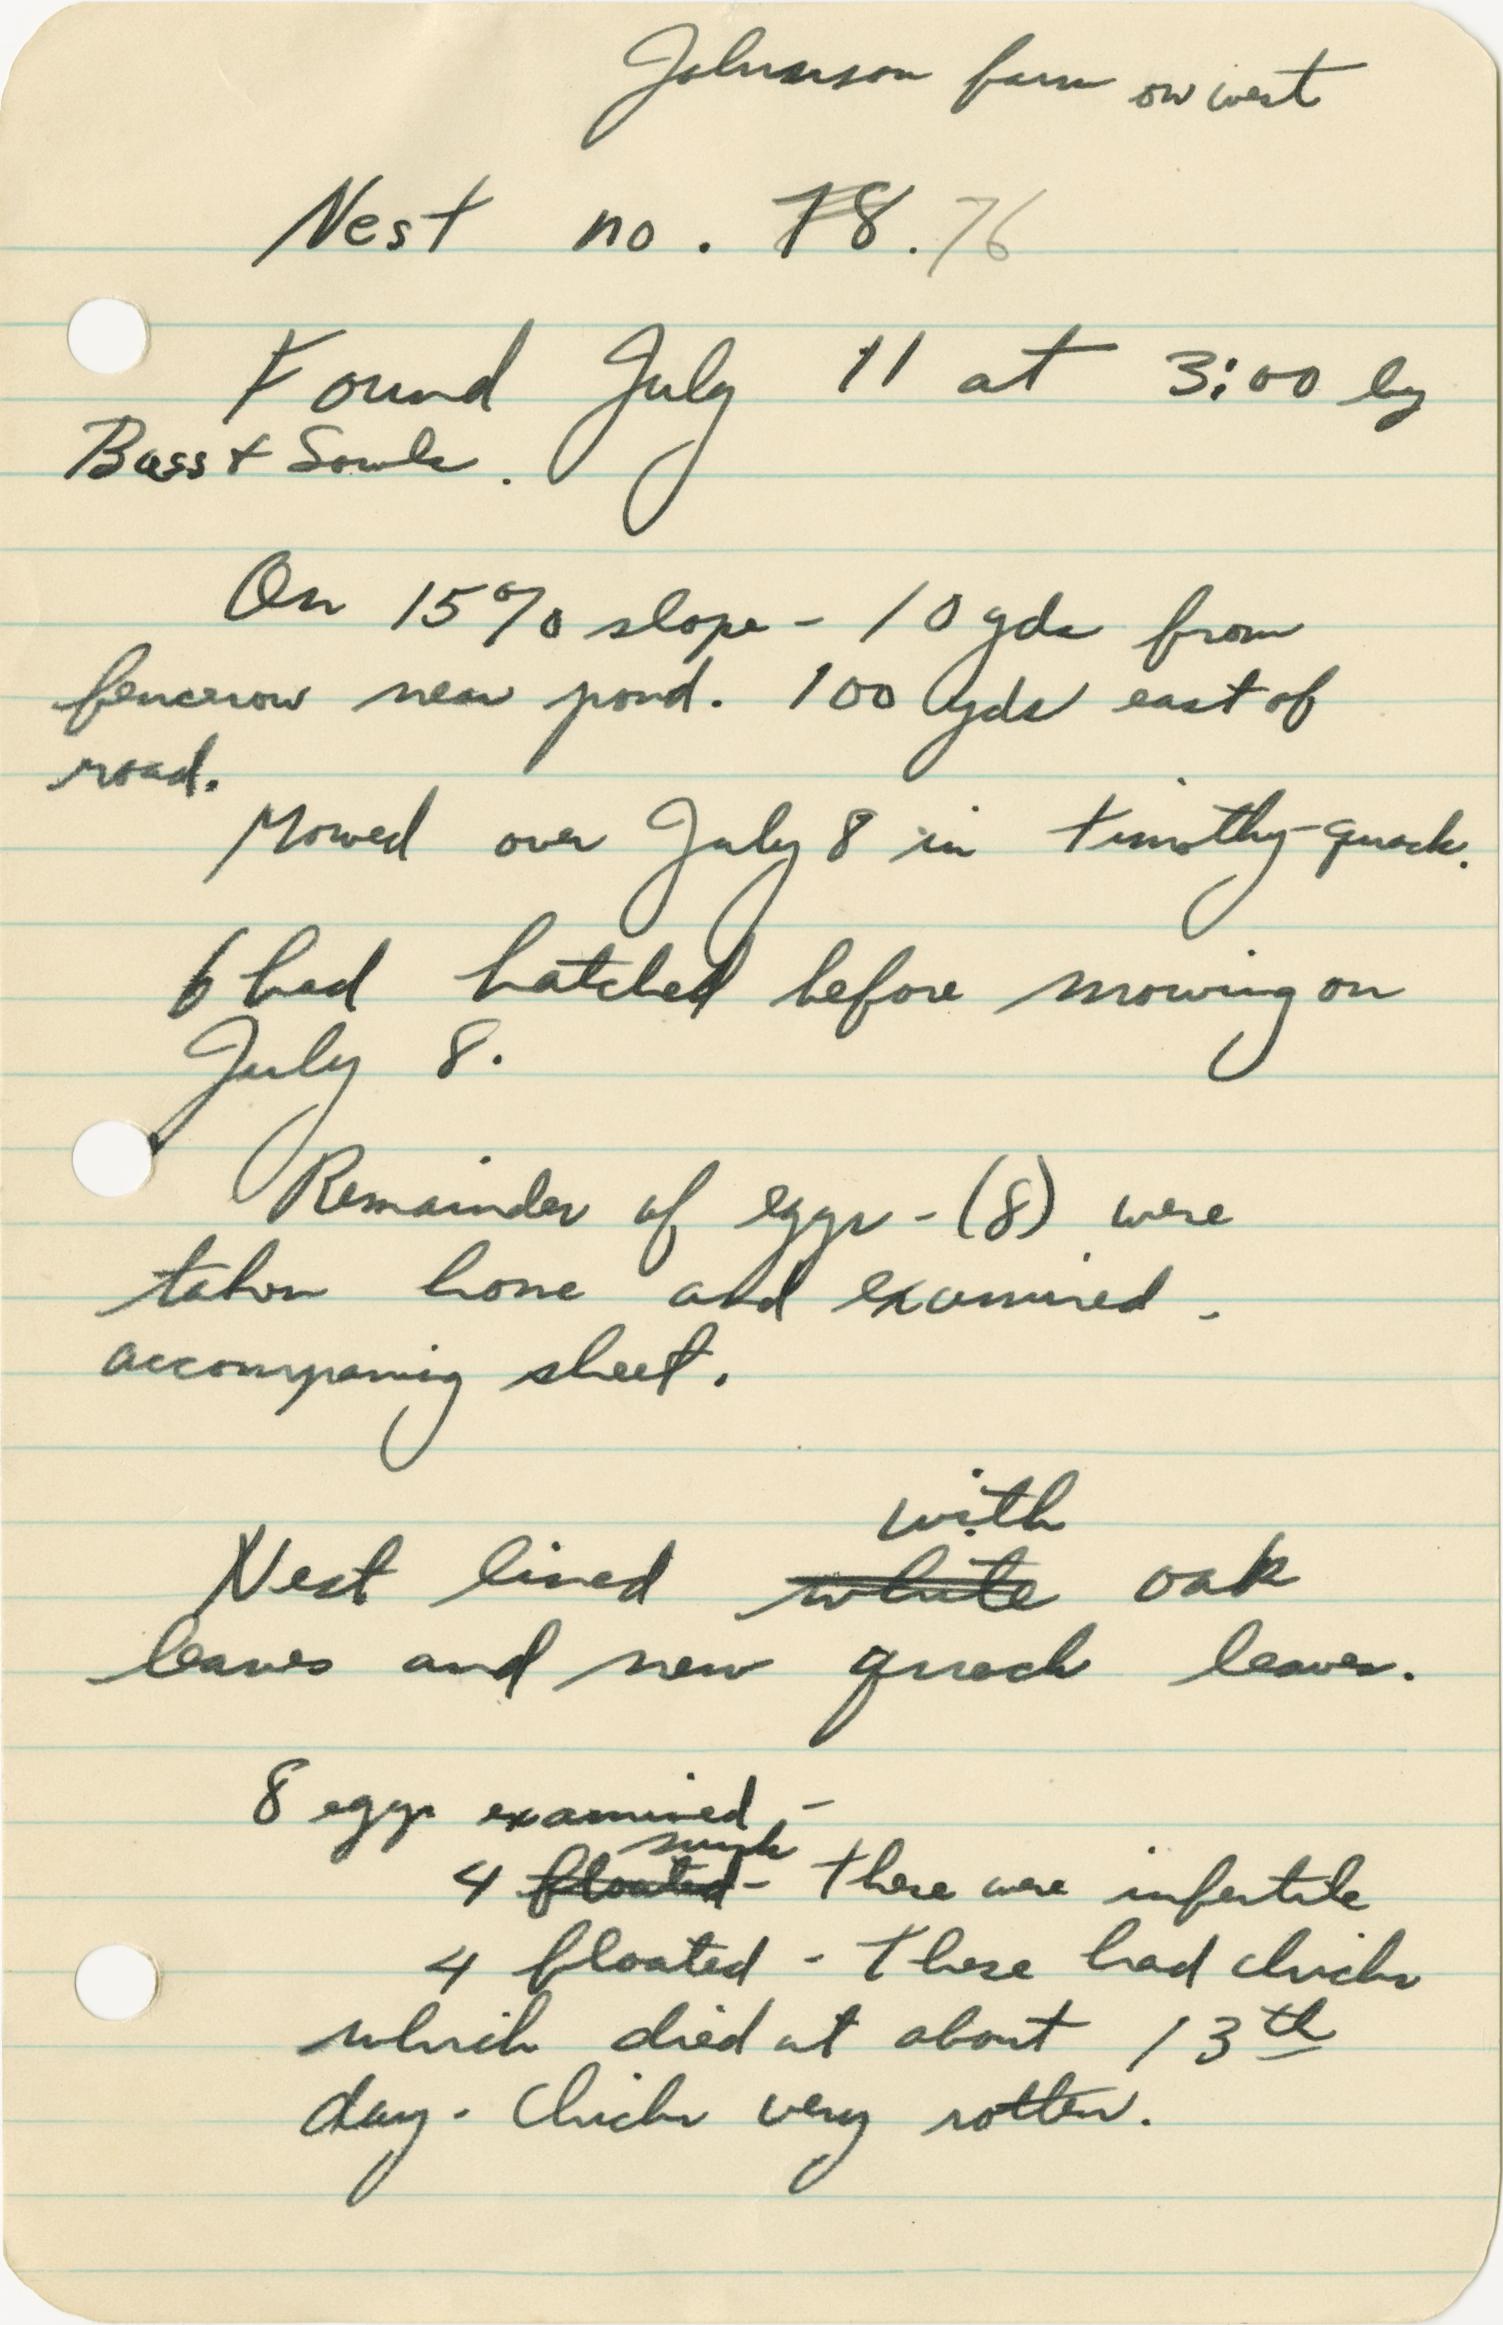 Johnson farm on west
Nest no. 78. 76
Found July 11 at 3:00 by
Buss + Sowls.
On 15% slope - 10 yds from
fencerow near pond. 100 yds east of
road.
Mowed over July 8 in timothy-quack.
6 had hatched before mowing on
July 8.
Remainder of eggs - (8) were
taken home and examined -
accompanig sheet.
with
Nest lined white oak
leaves and new quack leaves.
8 eggs examined -
sunk
4 floated - these were infertile
4 floated - These had chicks
which died at about 13th
day - Chicks very rotten.